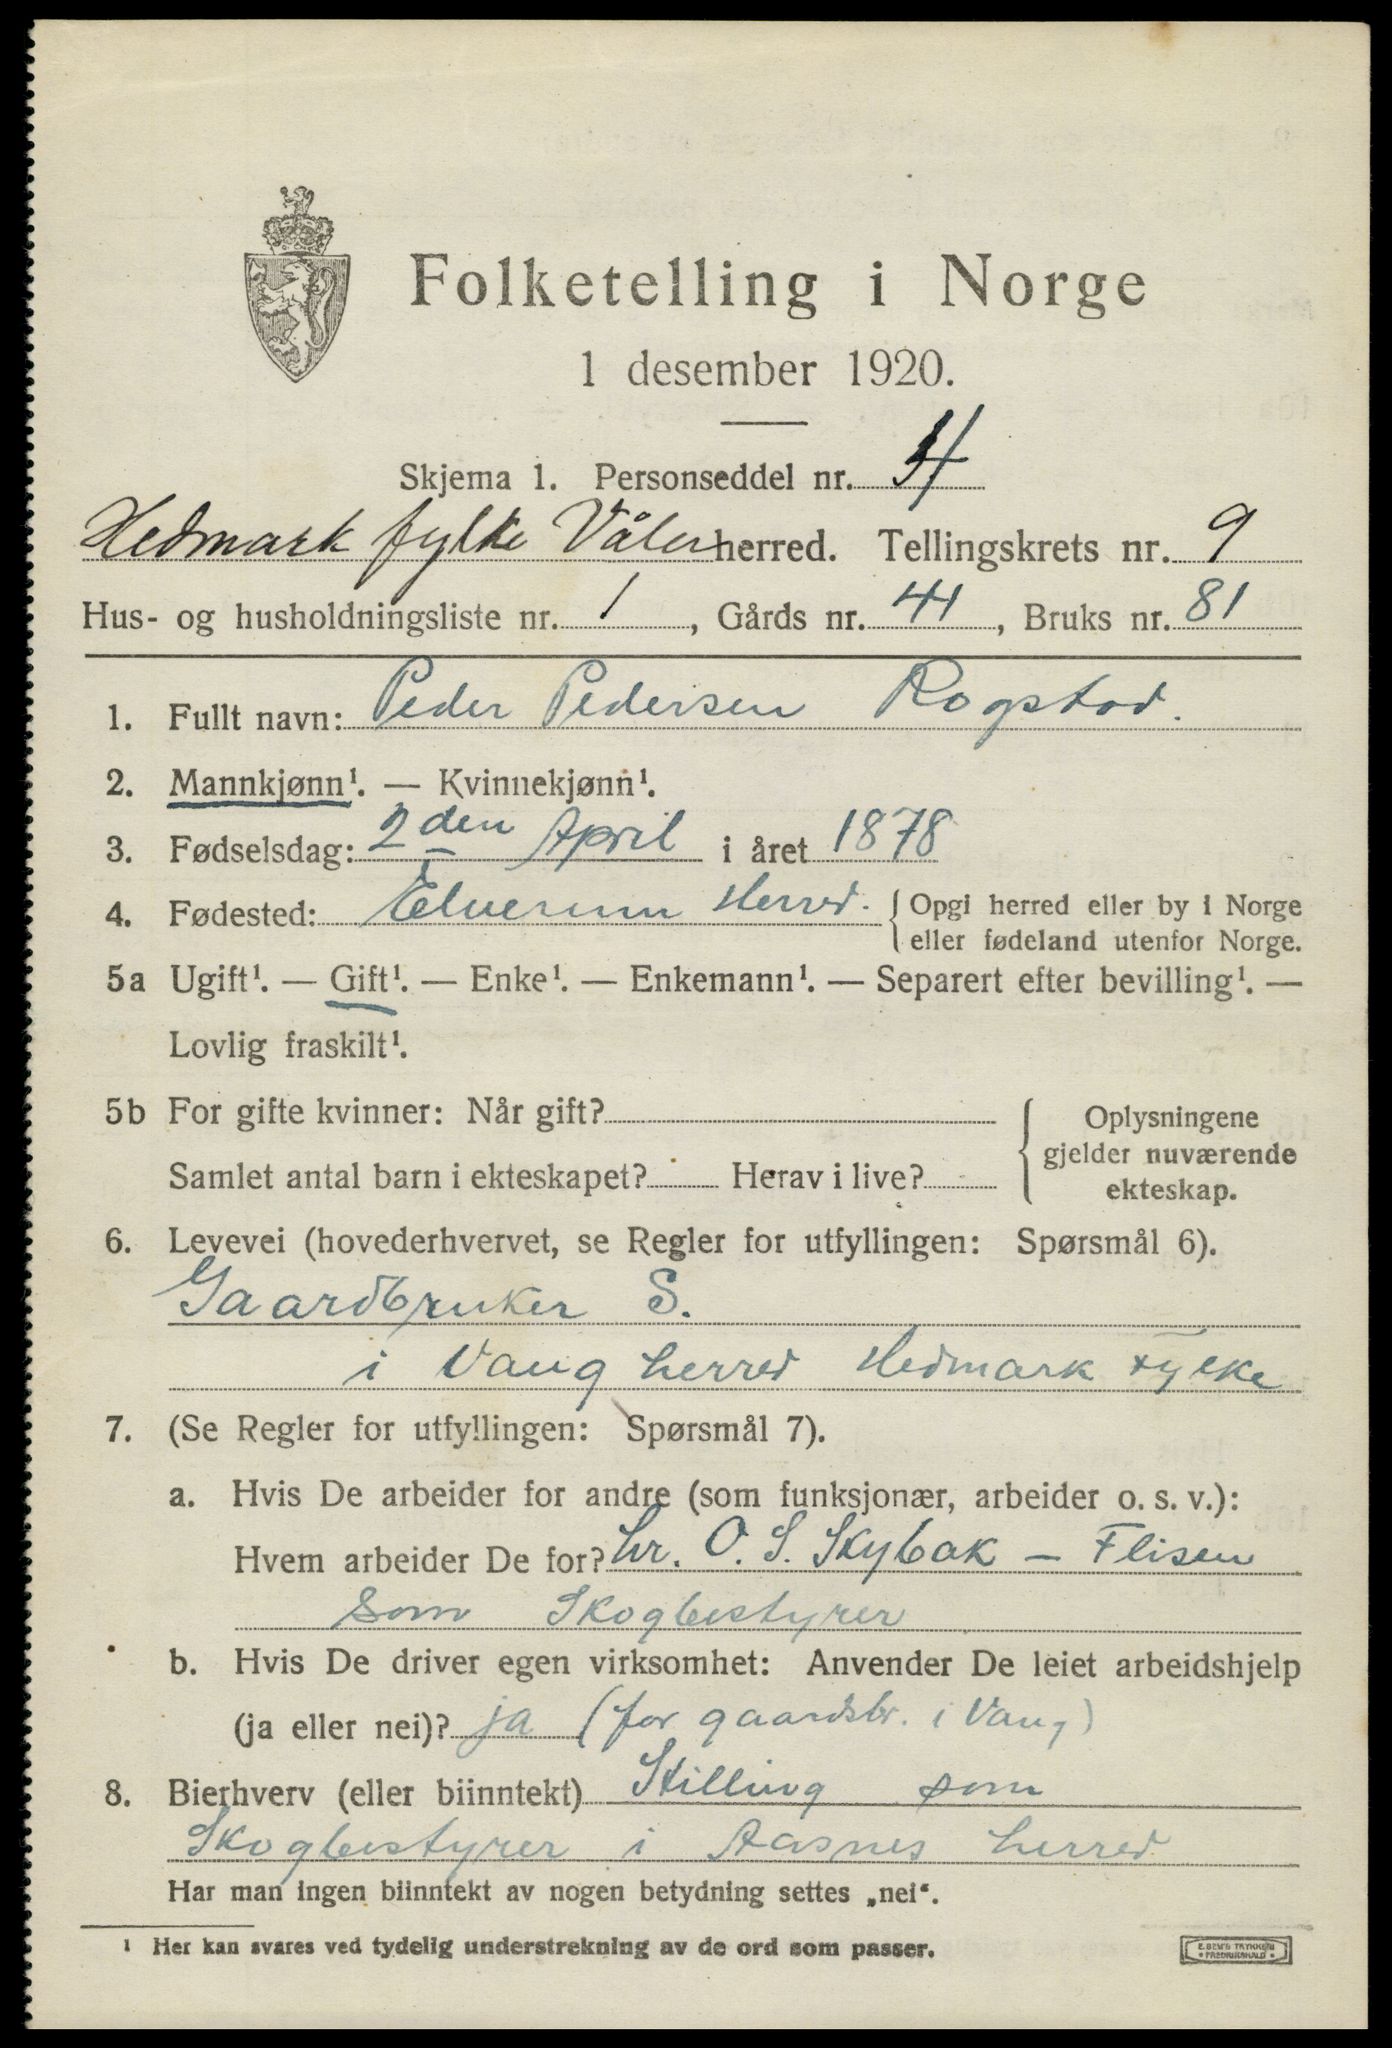 Folketelling i Norge
1 desember 1920.
Skjema 1. Personseddel nr. 4
Hedmark fylke Våler herred. Tellingskrets nr. 9
Hus- og husholdningsliste nr. 1, Gårds nr. 41, Bruks nr. 81
1. Fullt navn: Peder Pedersen Rogstad.
2. Mannkjønn¹. — Kvinnekjønn¹.
3. Fødselsdag: 2den April i året 1878
4. Fødested: Elverum Herred. { Opgi herred eller by i Norge
eller fødeland utenfor Norge.
5a Ugift¹. — Gift¹. — Enke¹. — Enkemann¹. — Separert efter bevilling¹. —
Lovlig fraskilt¹.
5b For gifte kvinner: Når gift?
Samlet antal barn i ekteskapet? Herav i live?
{ Oplysningene
gjelder nuværende
ekteskap.
6. Levevei (hovederhvervet, se Regler for utfyllingen: Spørsmål 6).
Gaardbruker S.
i Vang herred Hedmark Fylke
7. (Se Regler for utfyllingen: Spørsmål 7).
a. Hvis De arbeider for andre (som funksjonær, arbeider o. s. v.):
Hvem arbeider De for? hr. O. S. Skybak – Flisen
som Skogbestyrer
b. Hvis De driver egen virksomhet: Anvender De leiet arbeidshjelp
(ja eller nei)? ja (for gaardsbr. i Vang)
8. Bierhverv (eller biinntekt) Stilling som
Skogbestyrer i Aasnes herred
Har man ingen biinntekt av nogen betydning settes „nei“.
¹ Her kan svares ved tydelig understrekning av de ord som passer.
E. SEM'S TRYKKERI
FREDRIKSHALD